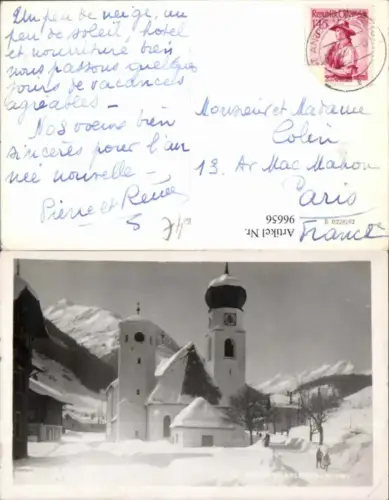 Un peu de neige, un
peu de soleil, hotel
et nourriture bien
nous passons quelques
jours de vacances
agreables —
Nos voeux bien
sincères pour l'an
née nouvelle —
Pierre et Renée
REPUBLIK
1.45
Monsieur et Madame
Colin
13. Av Mac Mahon
Paris
France
Artikel Nr.
96656